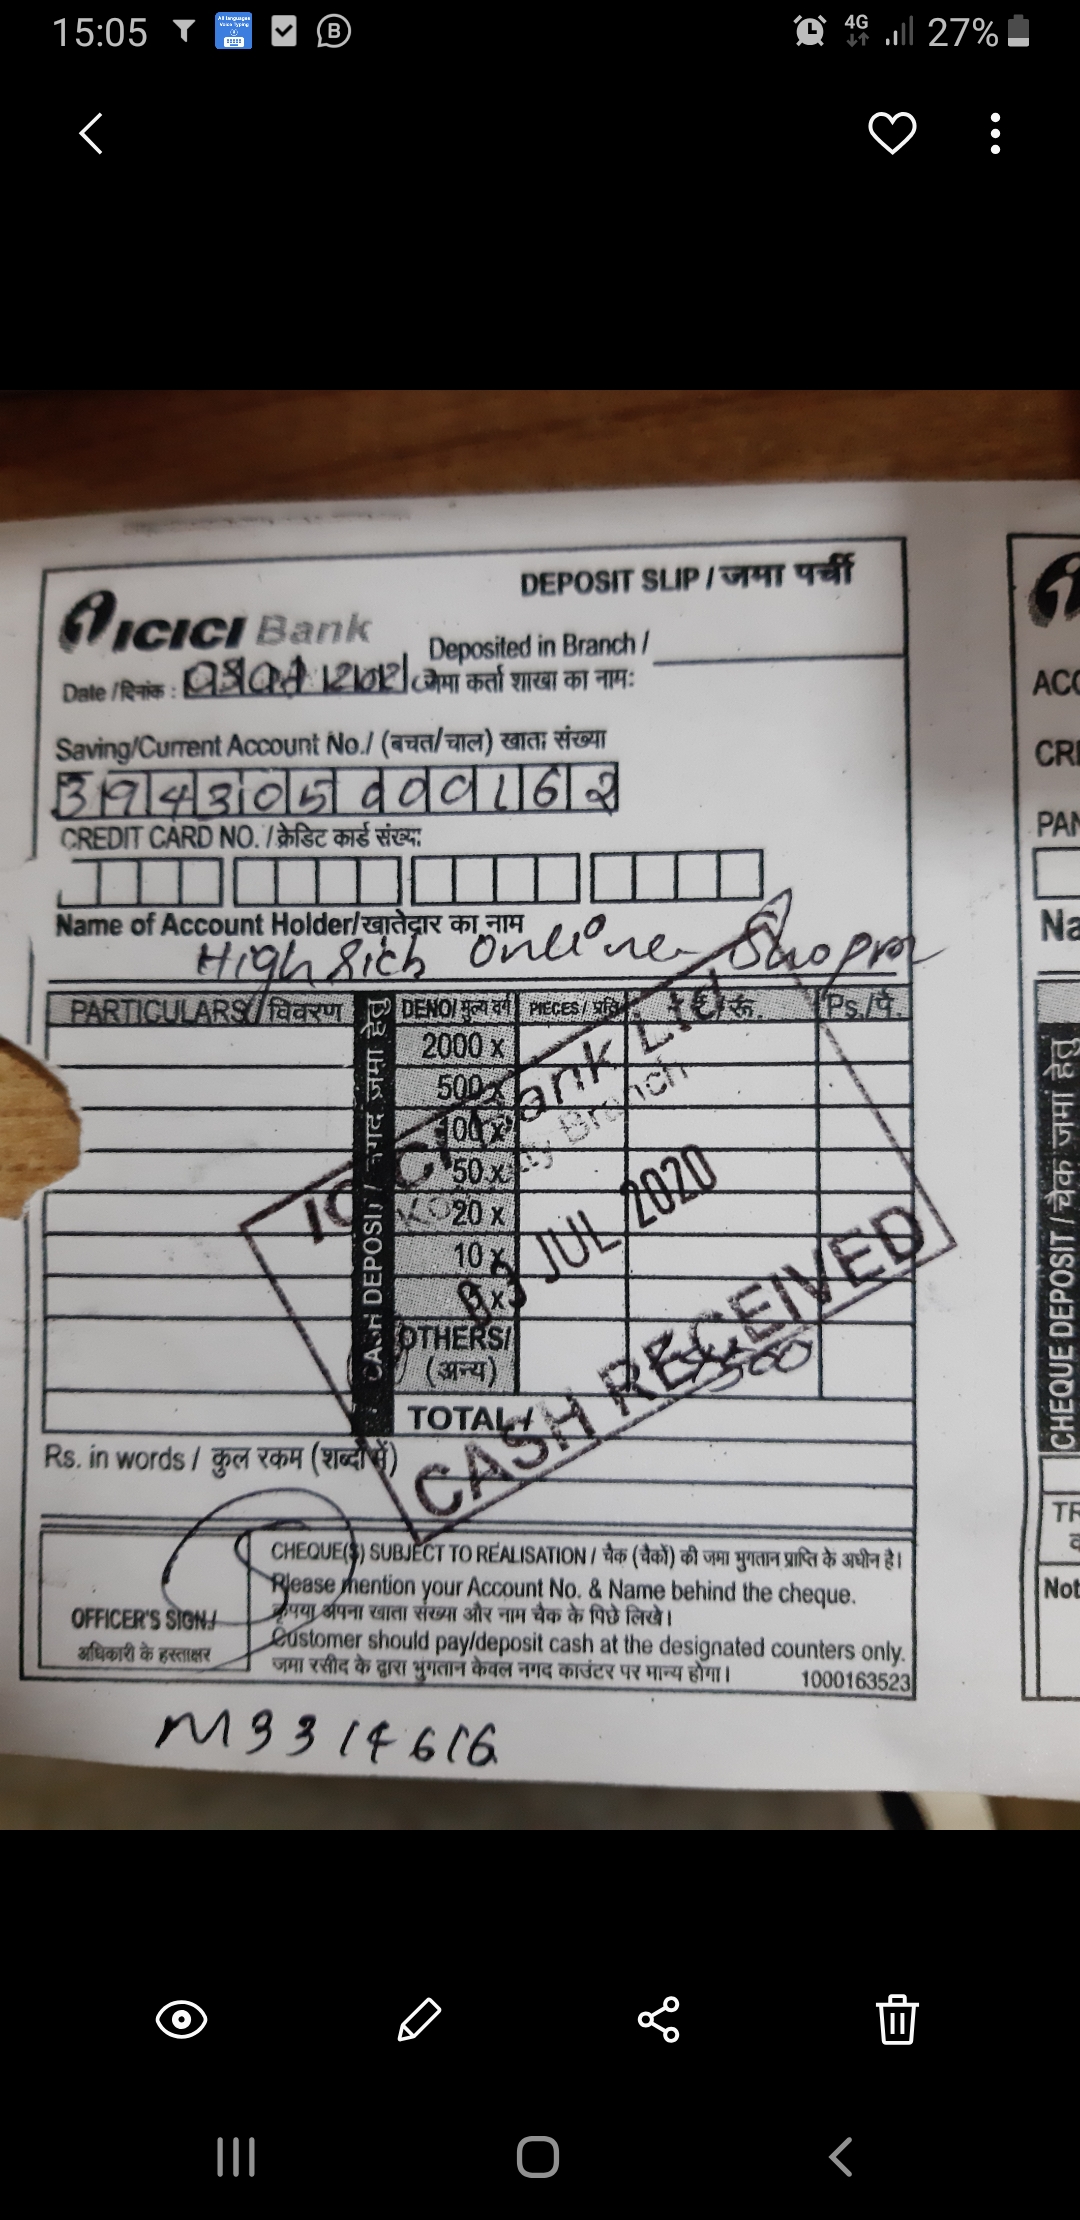 15:05
4G
27%
DEPOSIT SLIP / जमा पर्ची
ICICI Bank
Deposited in Branch /
Date / दिनांक :
जमा कर्ता शाखा का नाम:
Saving/Current Account No./ (बचत/चालू) खाता संख्या
394305000162
CREDIT CARD NO. / क्रेडिट कार्ड संख्या:
Name of Account Holder/खातेदार का नाम
High Rich Online
PARTICULARS/ विवरण
DENO/ मूल्य वर्ग
PIECES/
रु.
Ps./पै.
CASH DEPOSIT / नगद जमा हेतु
2000 x
500 x
100 x
50 x
20 x
10 x
x
OTHERS/
(अन्य)
TOTAL /
ICICI Bank Ltd
Branch
03 JUL 2020
CASH RECEIVED
500
Rs. in words / कुल रकम (शब्दों में)
CHEQUE(S) SUBJECT TO REALISATION / चैक (चैकों) की जमा भुगतान प्राप्ति के अधीन है।
Please mention your Account No. & Name behind the cheque.
कृपया अपना खाता संख्या और नाम चैक के पिछे लिखे।
Customer should pay/deposit cash at the designated counters only.
जमा रसीद के द्वारा भुगतान केवल नगद काउंटर पर मान्य होगा।
1000163523
OFFICER'S SIGN./
अधिकारी के हस्ताक्षर
M3314616
ACC
CRE
PAN
Na
CHEQUE DEPOSIT / चैक जमा हेतु
TR
Not